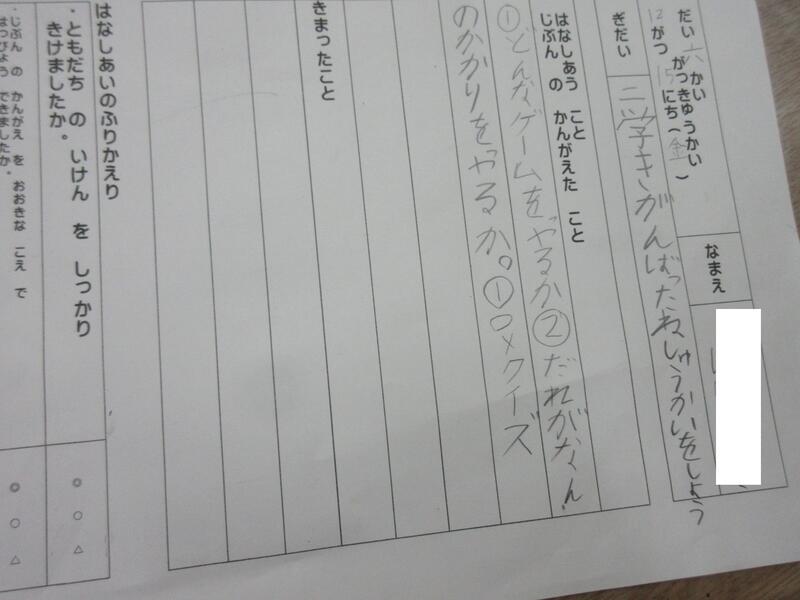 だい六かい がっきゅうかい
12がつ15にち(金)
なまえ
ぎだい
二学きがんばったねしゅうかいをしよう
はなしあう こと
じぶん の かんがえた こと
①どんなゲームをやるか②だれがなん
のかかりをやるか。①○×クイズ
きまったこと
はなしあいのふりかえり
・ともだち の いけん を しっかり
きけましたか。
◎ ○ △
・じぶん の かんがえ を おおきな こえ で
はっぴょう できましたか。
◎ ○ △